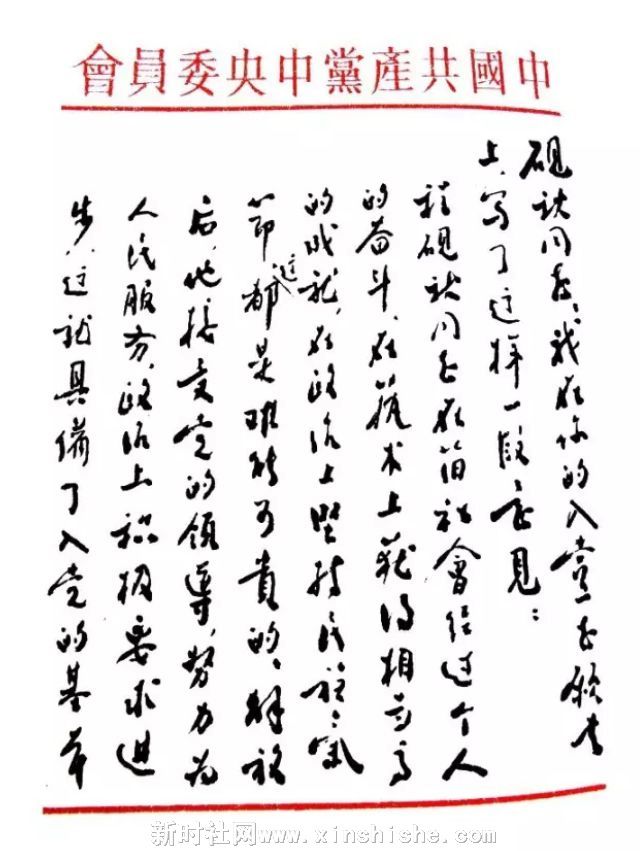 中國共產黨中央委員會
砚秋同志:我在你的入党志願书
上,写了这样一段意見:
程砚秋同志在旧社會经过个人
的奋斗,在藝术上获得相当高
的成就,在政治上坚持民族氣
節,这都是难能可貴的。解放
后,他接受党的領導,努力为
人民服务,政治上积极要求進
步,这就具備了入党的基本
新时社网www.xinshishe.com